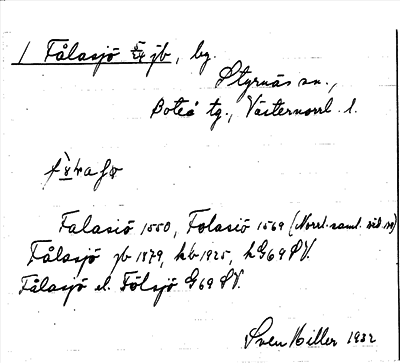 1 Fålasjö jb, by.
Styrnäs sn.,
Boteå tg., Västernorrl. l.
Falasiö 1550, Folasiö 1569 (Norrl. saml. sid.
Fålasjö jb 1879, kb 1925, hG69SV.
Fålasjö el. Fölsjö G69SV.
Sven Hiller 1932